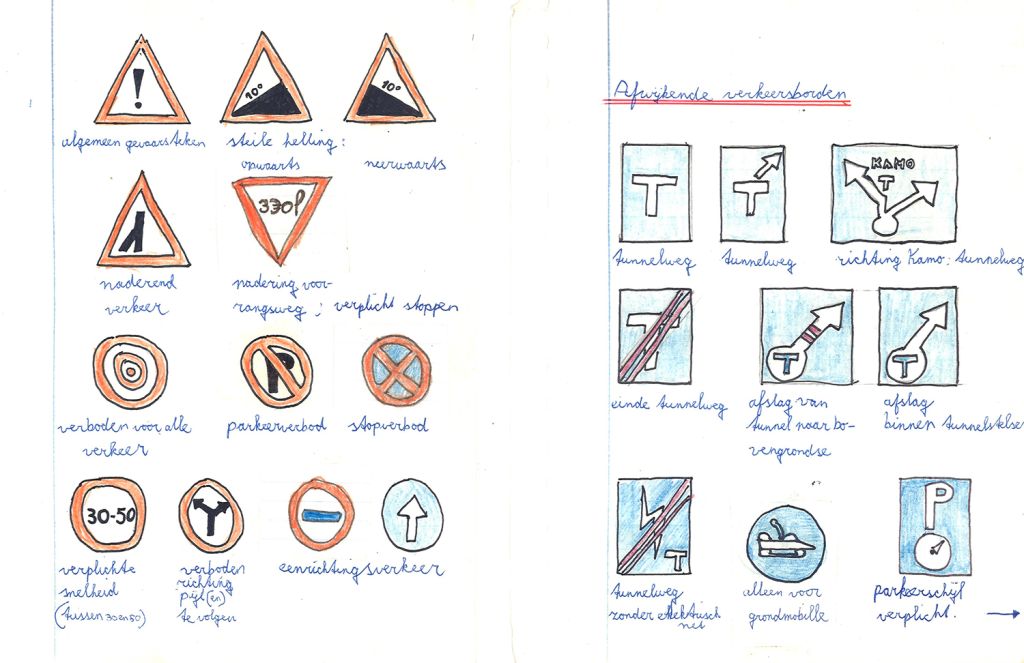 !
10°
10°
algemeen gevaarsteken
steile helling:
opwaarts
neerwaarts
naderend
verkeer
ЗЭОР
nadering voor-
rangsweg; verplicht stoppen
P
verboden voor alle
verkeer
parkeerverbod
stopverbod
30-50
verplichte
snelheid
(tussen 30 en 50)
verboden
richting
pijl(en)
te volgen
eenrichtingsverkeer
Afwijkende verkeersborden
T
T
KAMO
T
tunnelweg
tunnelweg
richting Kamo: tunnelweg
T
T
T
einde tunnelweg
afslag van
tunnel naar bo-
vengrondse
afslag
binnen tunnelstelse
T
P
tunnelweg
zonder elektrisch
net
alleen voor
grondmobille
parkeerschijf
verplicht.